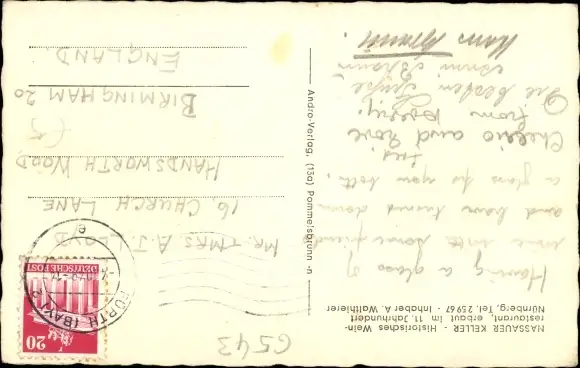 NASSAUER KELLER - Historisches Wein-
restaurant, erbaut im 11. Jahrhundert
Nürnberg, Tel. 2 59 67 - Inhaber A. Walthierer
Having a glass of
wine with some friend
and have turns down
a glass to you both.
Cheerio and love
from
Die besten Grüße
Hans
Andro-Verlag, (13a) Pommelsbrunn -n-
FÜRTH (BAY) 2
e
DEUTSCHE POST
20
MR. & MRS A. J. LLOYD
16, CHURCH LANE
HANDSWORTH WOOD
BIRMINGHAM 20
ENGLAND.
6543